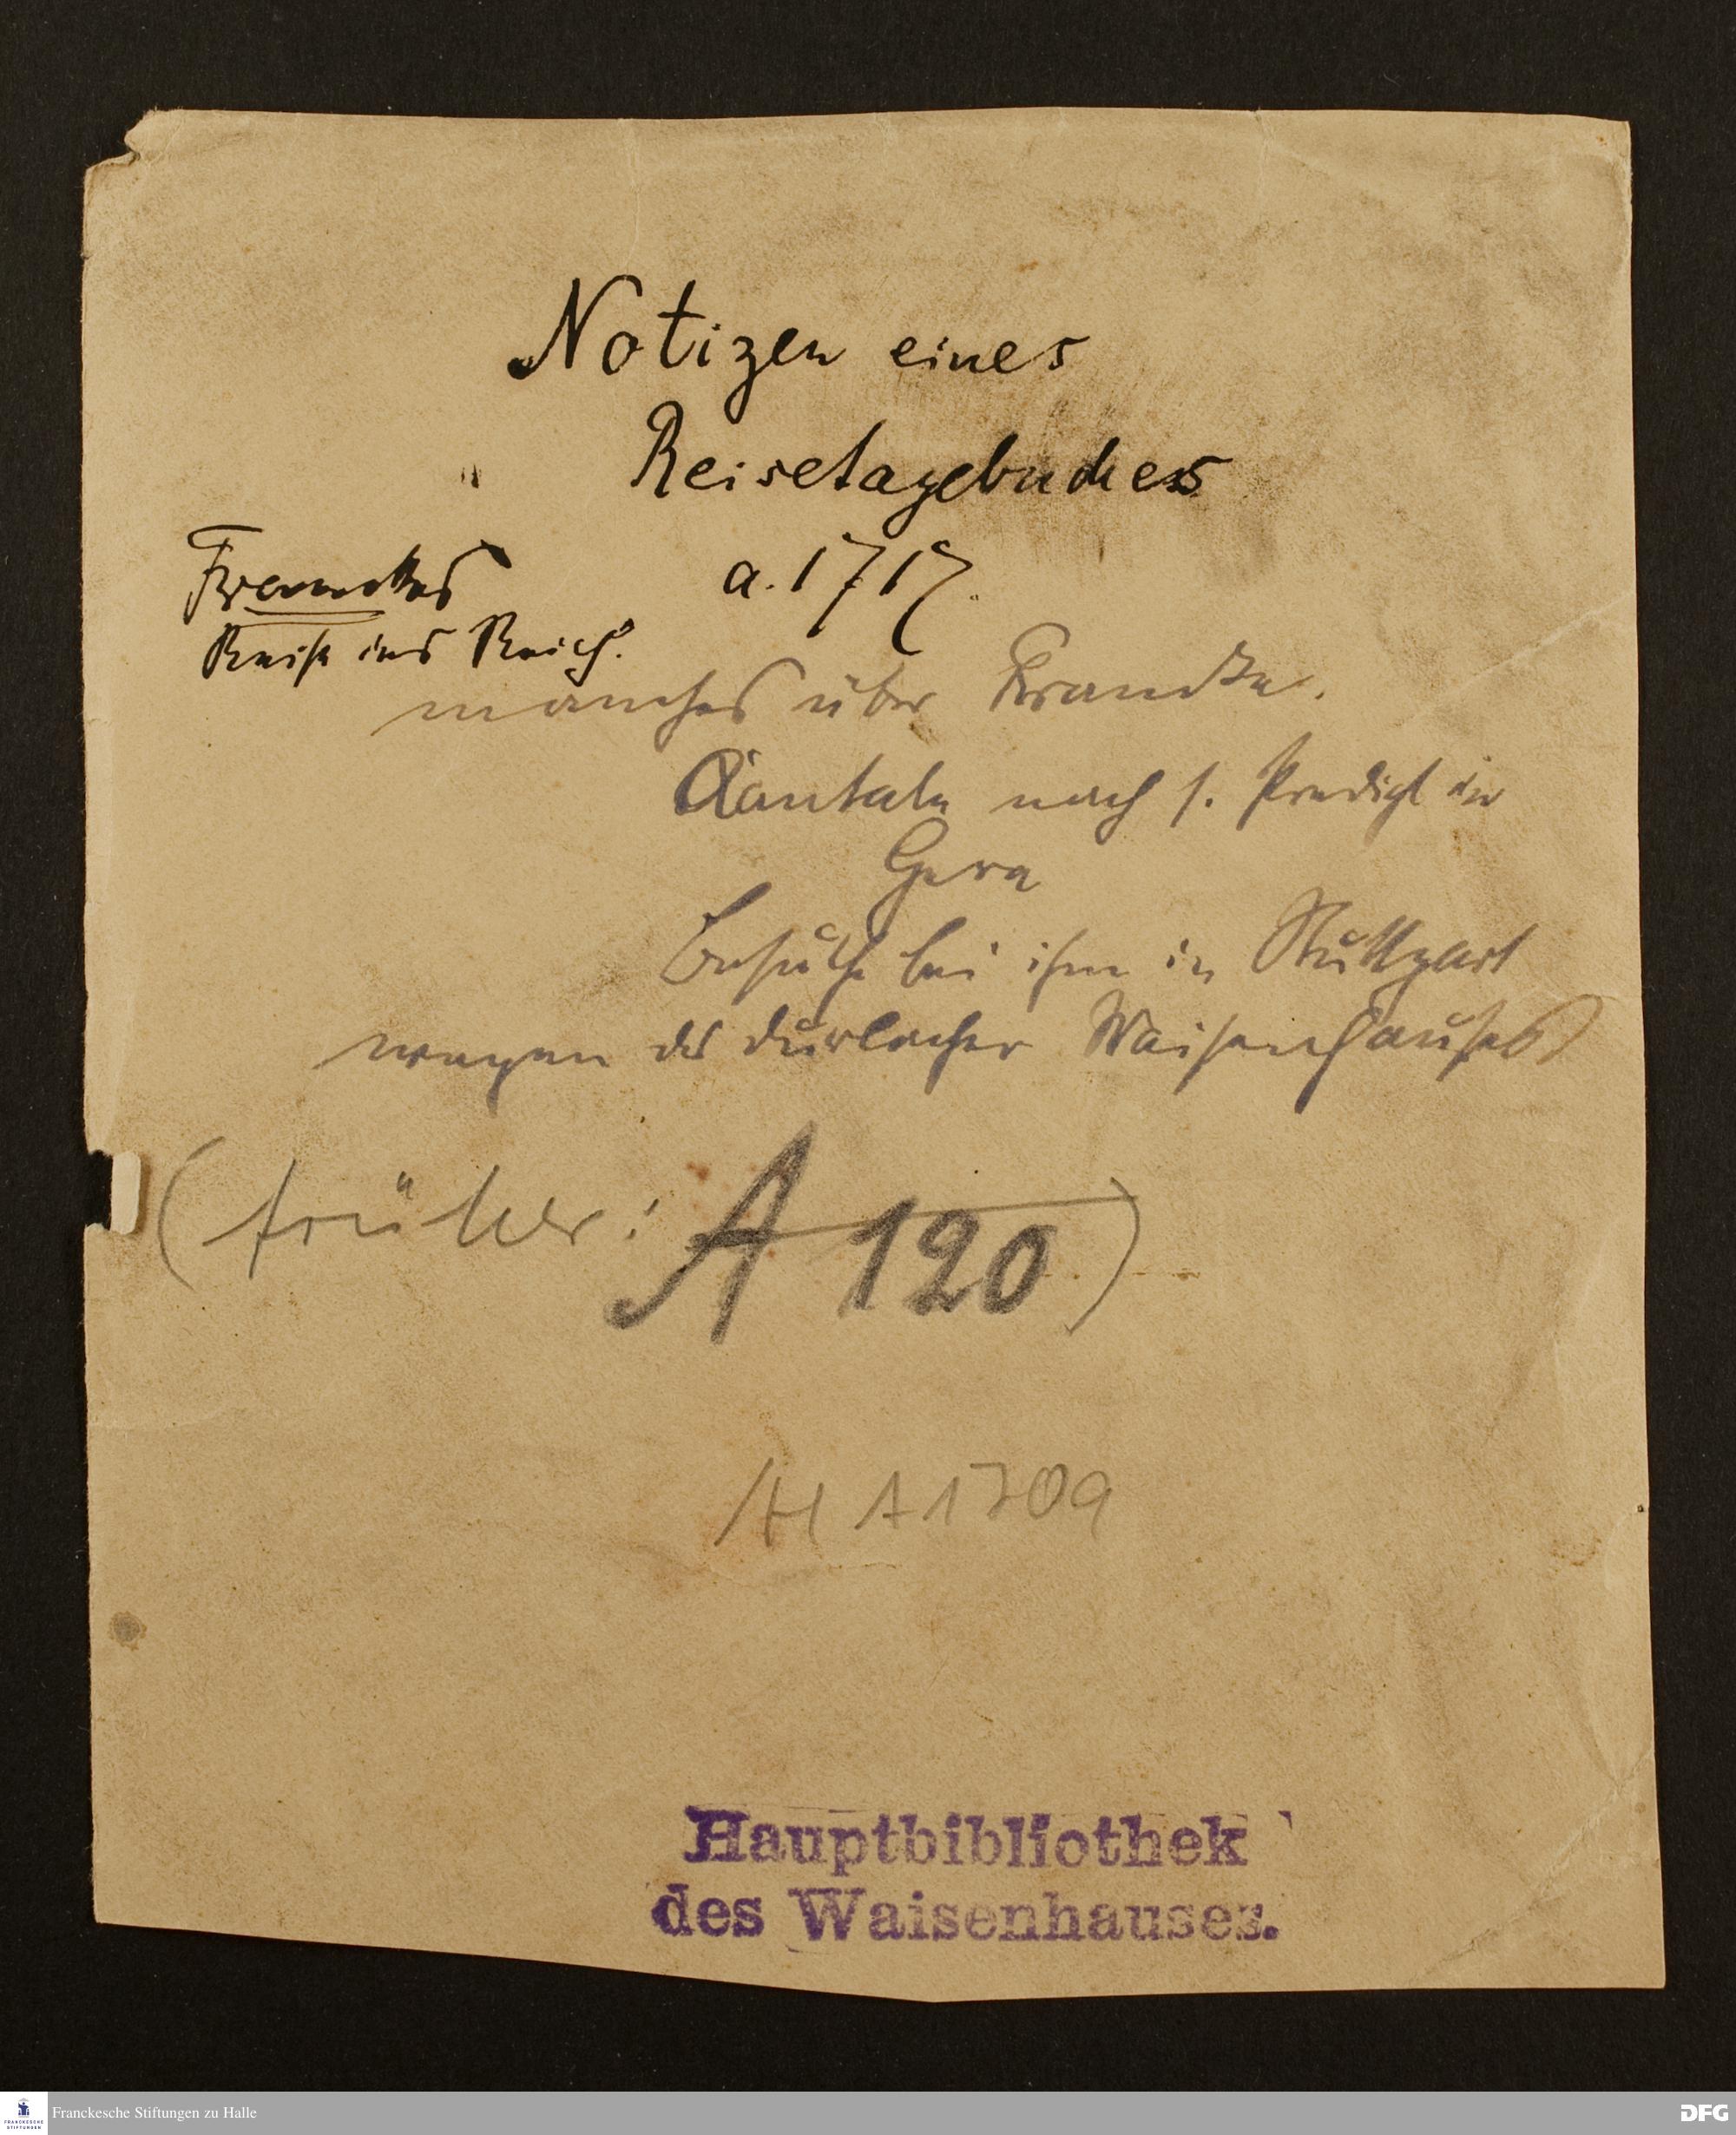 Notizen eines
Reisetagebuches
a. 1717.
Franckes
Reise ins Reich.
manches über Francke.
Cantate nach s. Predigt in
Gera
Besuche bei ihm in Stuttgart
wegen des durlacher Waisenhauses
(früher: A 120)
/H A 170a
Hauptbibliothek
des Waisenhauses.
Franckesche Stiftungen zu Halle
FRANCKESCHE
STIFTUNGEN
DFG